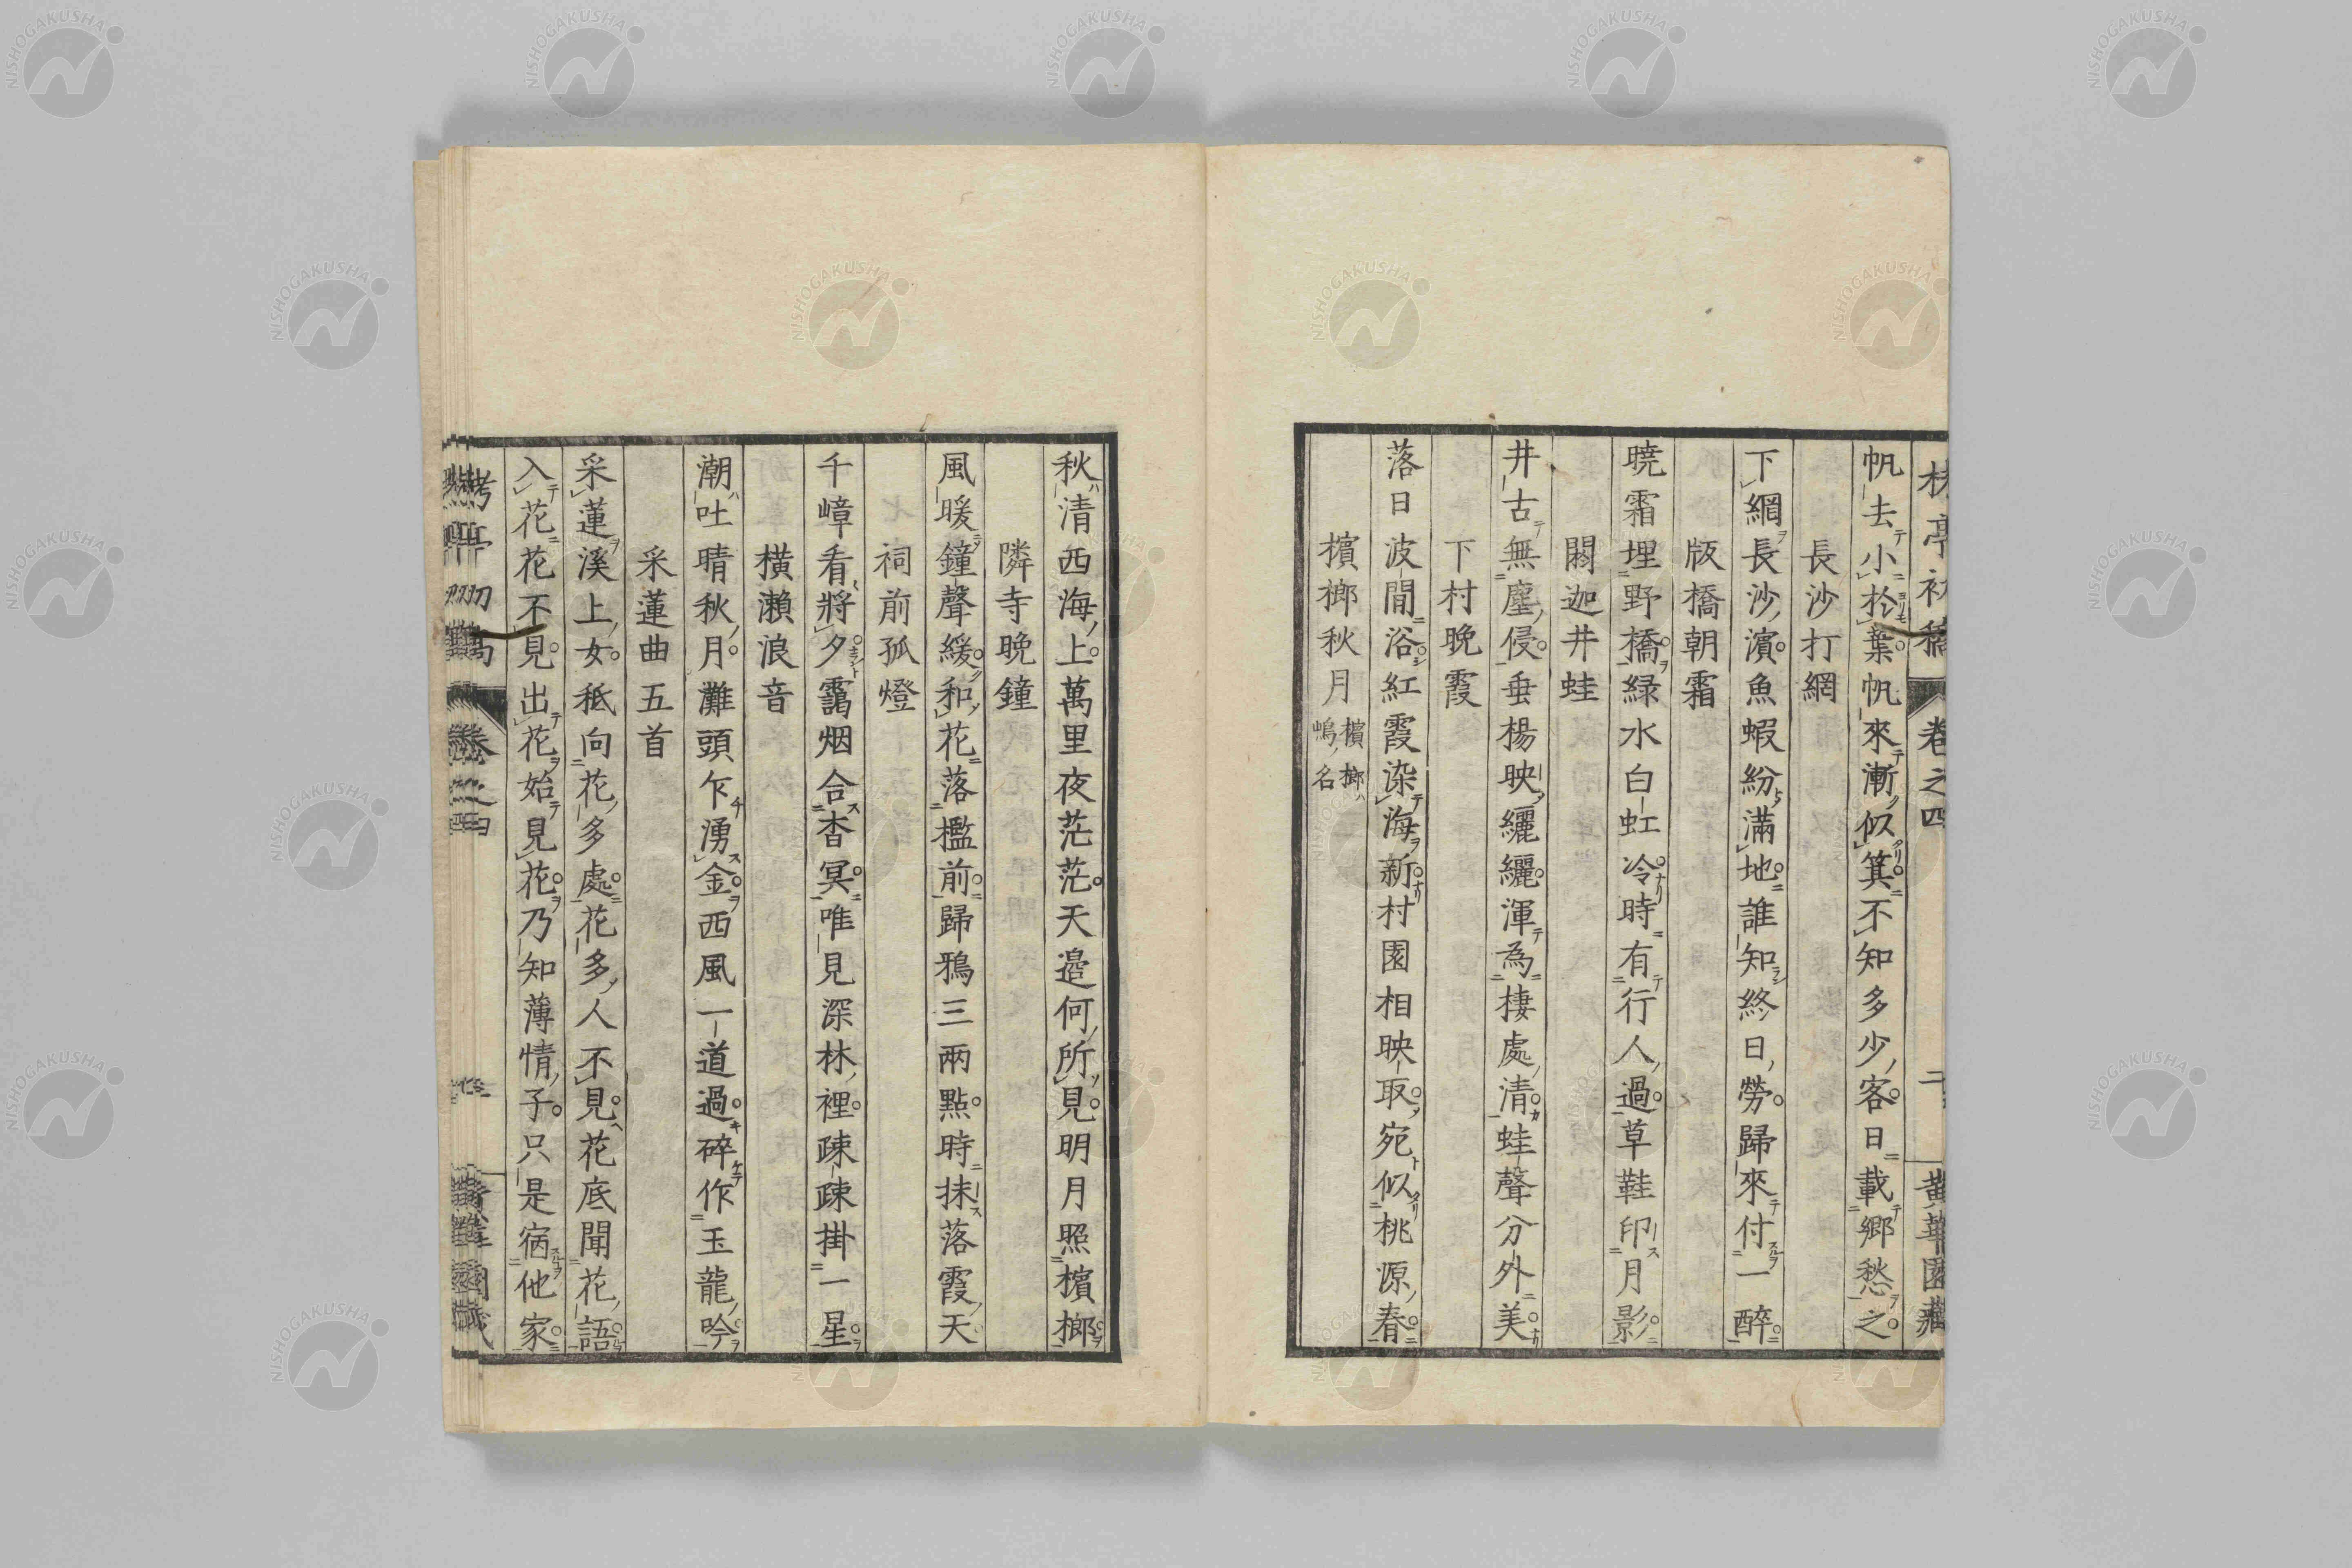 帆去小於葉帆來漸似箕不知多少客日載鄉愁之
長沙打網
下網長沙濱魚蝦紛滿地誰知終日勞歸來付一醉
版橋朝霜
曉霜埋野橋綠水白虹冷時有行人過草鞋印月影
閼迦井蛙
井古無塵侵垂楊映纚纚渾為棲處清蛙聲分外美
下村晚霞
落日波間浴紅霞染海新村園相映取宛似桃源春
檳榔秋月 檳榔ハ嶋ノ名
秋清西海上萬里夜茫茫天邉何所見明月照檳榔
隣寺晚鐘
風暖鐘聲緩和花落檻前歸鴉三兩點時抹落霞天
祠前孤燈
千嶂看將夕靄烟合杳冥唯見深林裡疎疎掛一星
橫瀨浪音
潮吐晴秋月灘頭乍湧金西風一道過碎作玉龍吟
采蓮曲五首
采蓮溪上女秪向花多處花多人不見花底聞花語
入花花不見出花始見花乃知薄情子只是宿他家
卷之四
黃華園藏
NISHOGAKUSHA